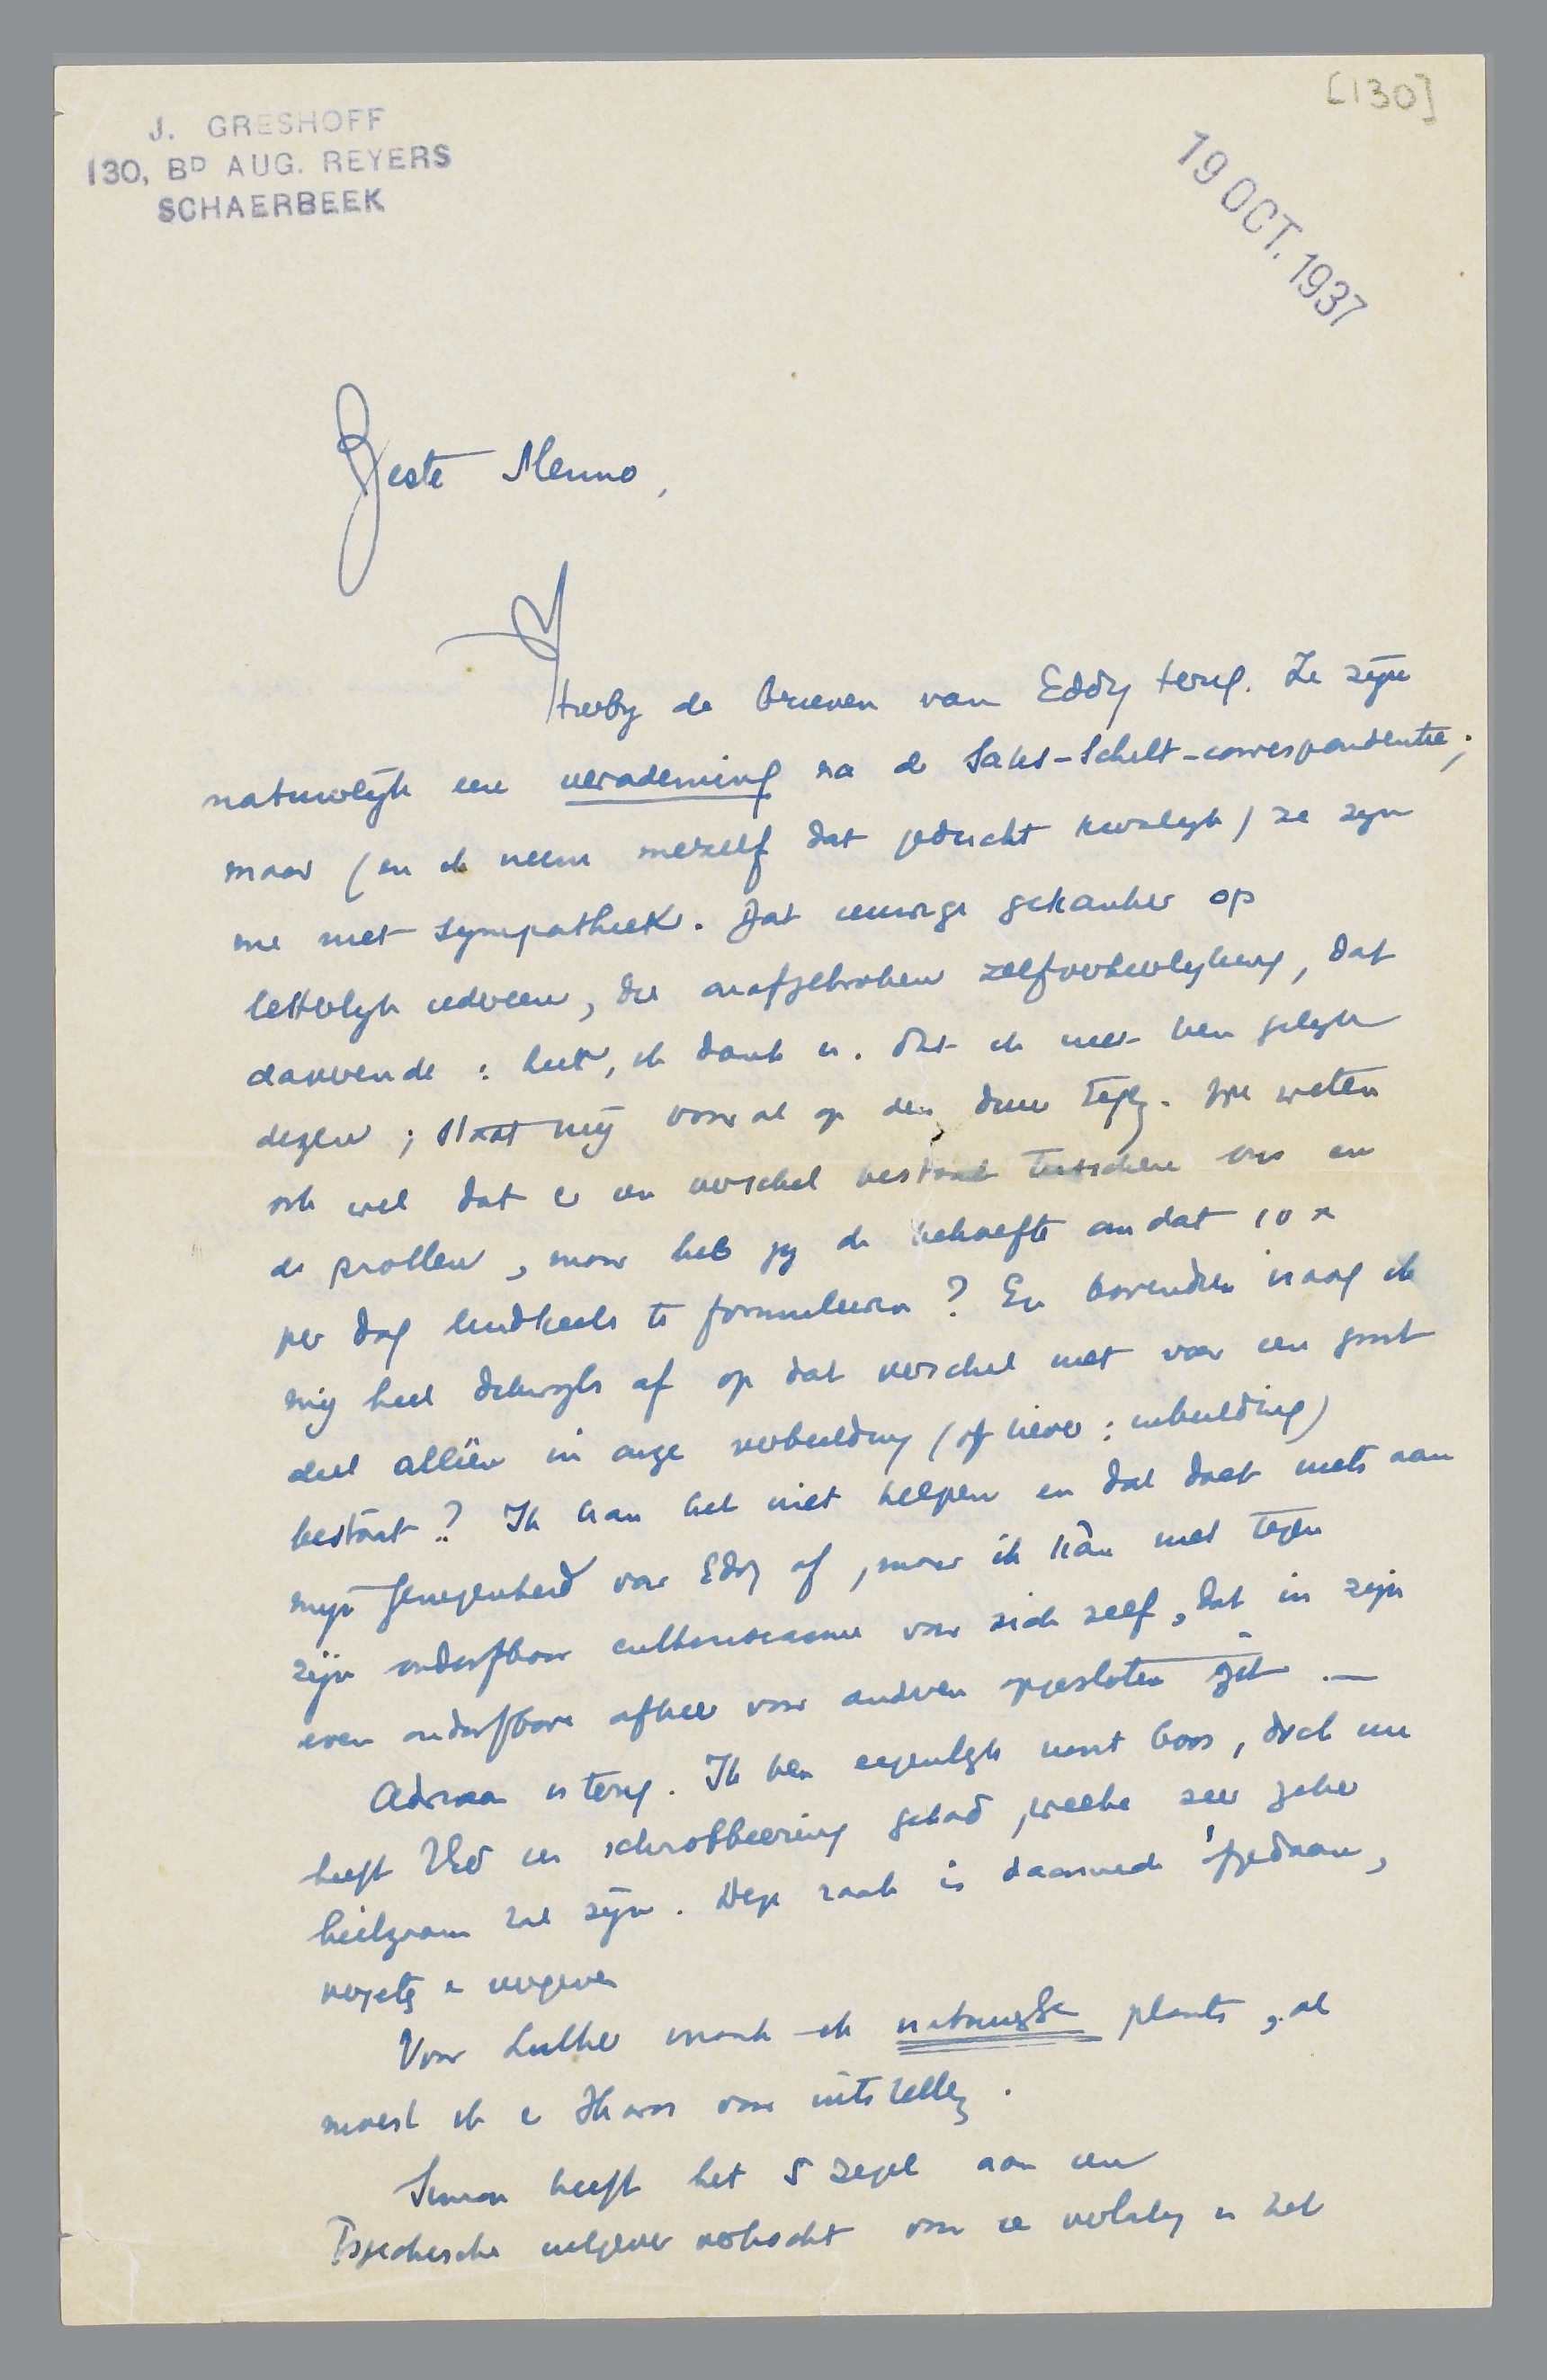 [130]
J. GRESHOFF
130, BD AUG. REYERS
SCHAERBEEK
19 OCT. 1937
Beste Menno,
Hierby de brieven van Eddy terug. Ze zijn
natuurlijk een verademing na de Saks-Schilt-correspondentie;
maar (en ik neem mezelf dat geducht kwalijk) ze zyn
me niet sympathiek. Dat eeuwige gekanker op
letterlyk iedereen, die onafgebroken zelfverheerlyking, dat
danvende: heer, ik dank u. dat ik niet ben gelyk
dezen; staat mij vooral op den duur tegen. We weten
ook wel dat er een verschil bestaat tusschen ons en
de prollen, maar heb jy de behoefte om dat 10 x
per dag luidkeels te formuleeren? En bovendien vraag ik
mij heel dikwyls af op dat verschil niet voor een groot
deel alléen in onze verbeelding (of liever: inbeelding)
bestaat? Ik kan het niet helpen en dat doet niets aan
mijn genegenheid voor Eddy af, maar ik kàn niet tegen
zijn onderfboor enthousiasme voor zich zelf, dat in zijn
even onderfbore afkeer voor anderen opgesloten zit. —
Adriaan is terug. Ik ben eigenlyk nooit boos, doch nu
heeft Ved een schrobbeering gehad, welke zeer zeker
heilzaam zal zijn. Deze zaak is daarmede afgedaan,
vergeten en vergeven
Voor Luther maak ik natuurlyk plaats, al
moest ik er Thomas voor uitstellen.
Simon heeft het 5 zegel aan een
Tsjechische uitgever verkocht voor ce vertaling in het